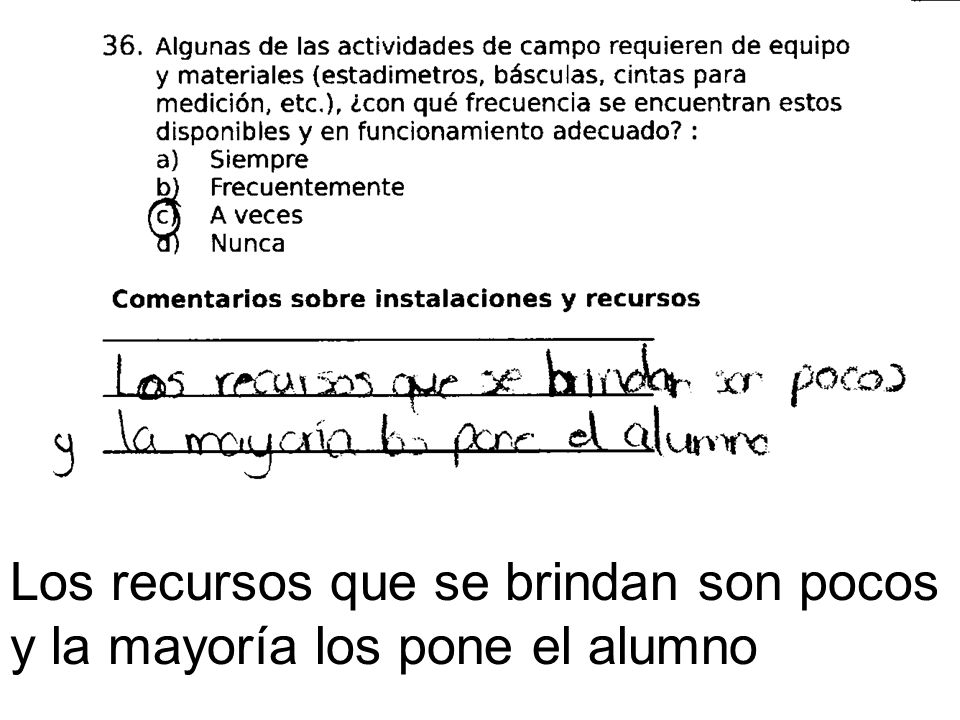 36. Algunas de las actividades de campo requieren de equipo
y materiales (estadimetros, básculas, cintas para
medición, etc.), ¿con qué frecuencia se encuentran estos
disponibles y en funcionamiento adecuado? :
a) Siempre
b) Frecuentemente
c) A veces
d) Nunca
Comentarios sobre instalaciones y recursos
Los recursos que se brindan son pocos
y la mayoría los pone el alumno
Los recursos que se brindan son pocos
y la mayoría los pone el alumno